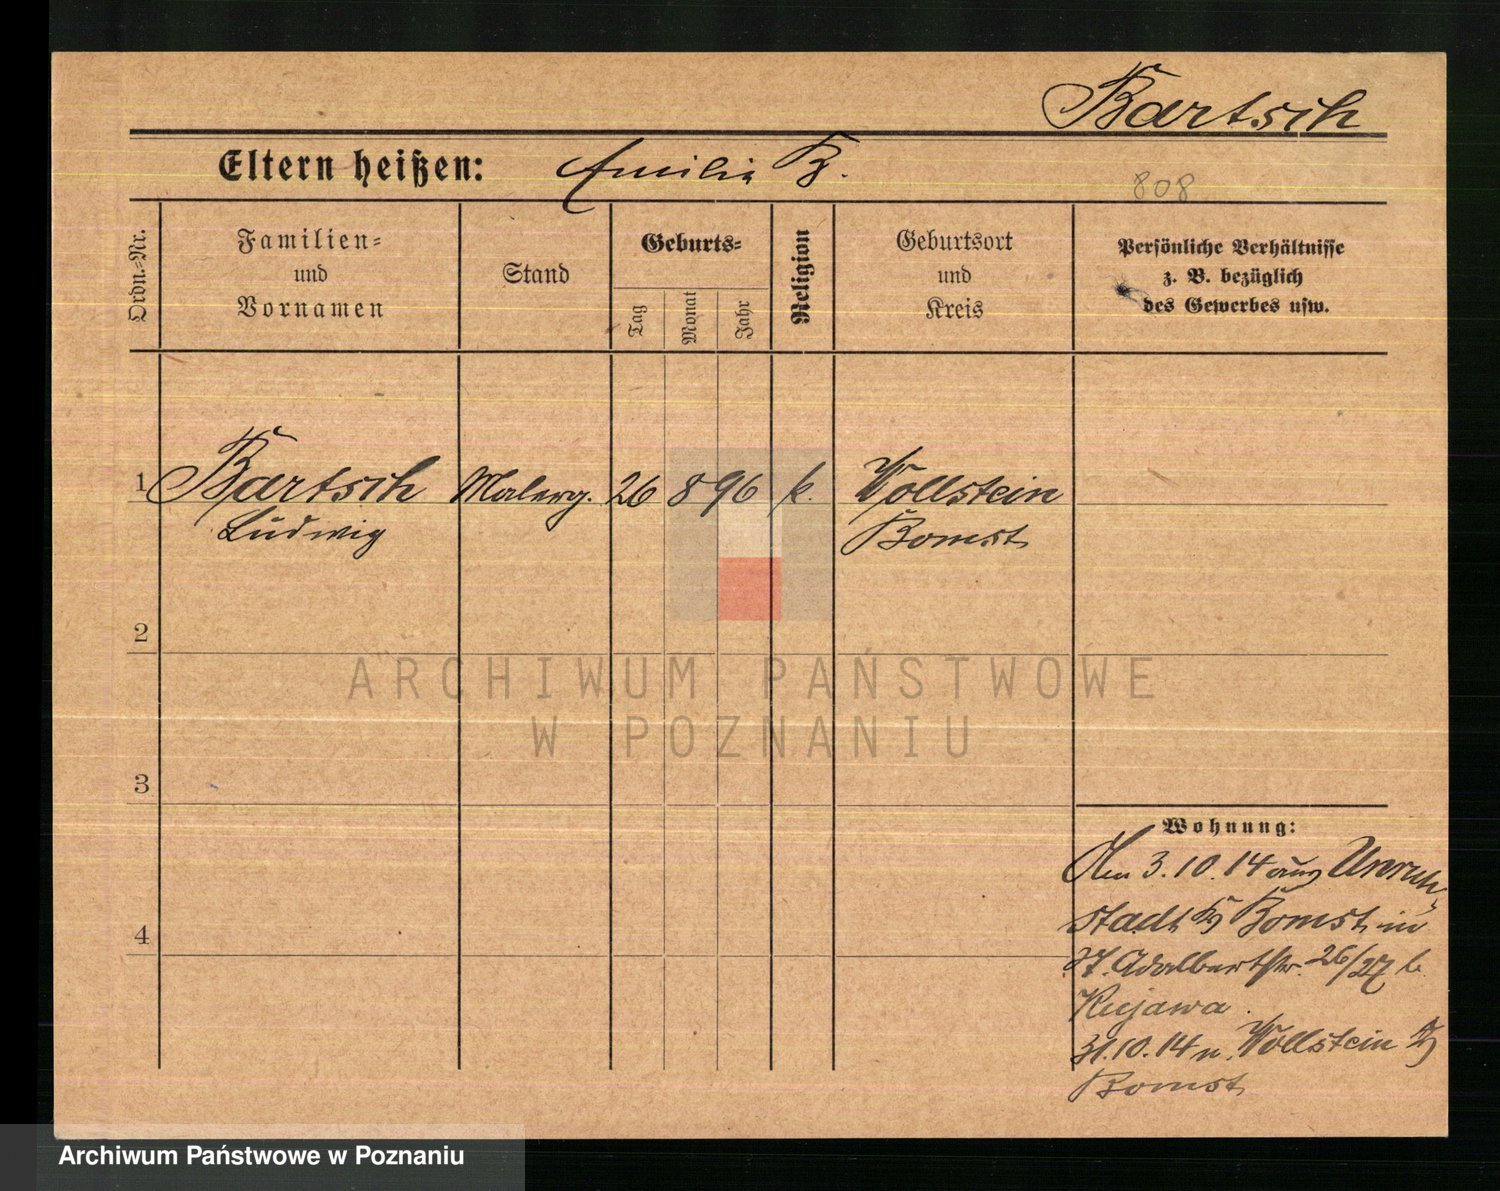 Bartsch
Eltern heißen: Emilia B.
808
Ordn.-Nr.
Familien-
und
Vornamen
Stand
Geburts-
Tag
Monat
Jahr
Religion
Geburtsort
und
Kreis
Persönliche Verhältnisse
z. B. bezüglich
des Gewerbes usw.
1 Bartsch Malerg. 26 8 96 k. Wollstein
Ludwig Bomst
2
ARCHIWUM PAŃSTWOWE
W POZNANIU
3
4
Wohnung:
Am 3.10.14 aus Unruh-
stadt Kr Bomst in
St. Adalbertstr. 26/27 b.
Kujawa.
31.10.14 n. Wollstein Kr
Bomst
Archiwum Państwowe w Poznaniu